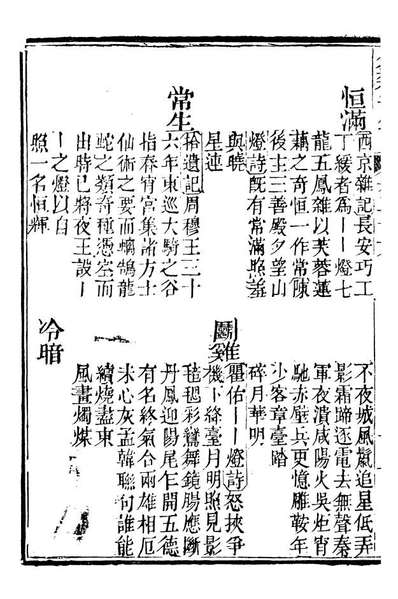 恒滿
西京雜記長安巧工
丁緩者為丨丨燈七
龍五鳳雜以芙蓉蓮
藕之奇恒一作常陳
後主三善殿夕望山
燈詩既有常滿照羞
與曉
星連
常生
拾遺記周穆王三十
六年東巡大騎之谷
指春宵宮集諸方士
仙術之要而螭鵠龍
蛇之類奇種憑空而
出時已將夜王設丨
丨之燈以自
照一名恒輝
不夜城風鬣追星低弄
影霜蹄逐電去無聲秦
軍夜潰咸陽火吳炬宵
馳赤壁兵更憶雕鞍年
少客章臺踏
碎月華明
鬭雞
瞿佑丨丨燈詩怒挾爭
機下絳臺月明照見影
毰毸彩鸞舞鏡腸應斷
丹鳳迎陽尾乍開五德
有名終氣合兩雄相厄
未心灰孟韓聯句誰能
續燒盡東
風畫燭煤
冷暗